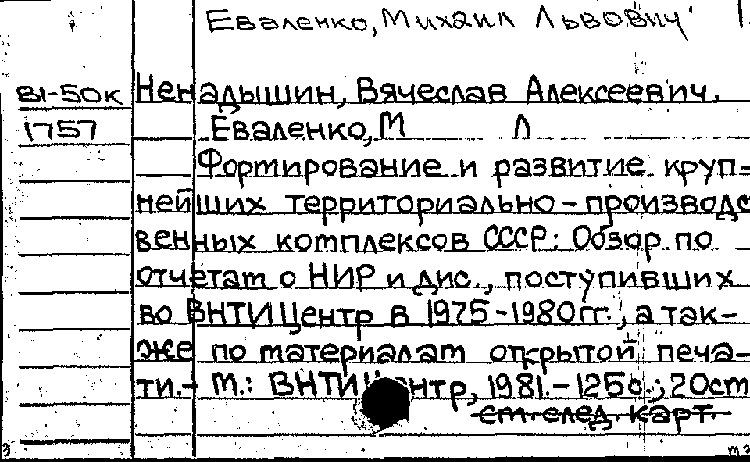 Еваленко, Михаил Львович
81-50К Ненадышин, Вячеслав Алексеевич.
1757 Еваленко, М Л
Формирование и развитие круп=
нейших территориально-производс
венных комплексов СССР: Обзор по
отчетам о НИР и дис., поступивших
во ВНТИЦентр в 1975-1980гг., а так-
же по материалам открытой печа-
ти.- М.: ВНТИЦентр, 1981.-125с.; 20см
см.след.карт.